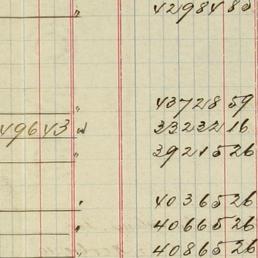 " 4298485
" 4372859
49643 W 3323216
" 3921526
" 4036526
" 4066526
" 4086526